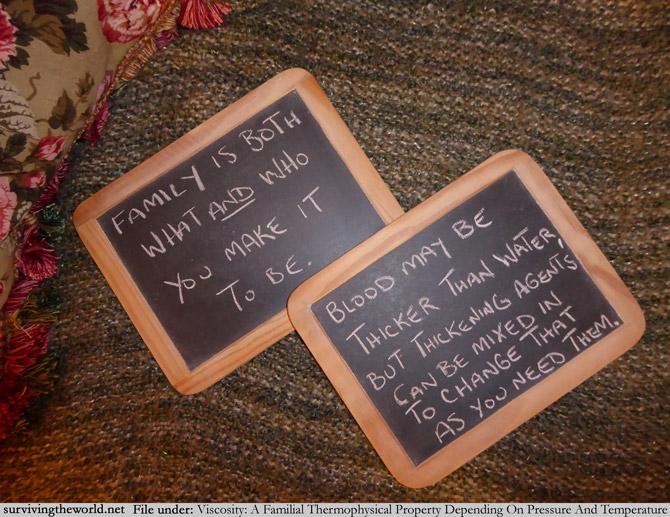 FAMILY IS BOTH
WHAT AND WHO
YOU MAKE IT
TO BE.
BLOOD MAY BE
THICKER THAN WATER,
BUT THICKENING AGENTS
CAN BE MIXED IN
TO CHANGE THAT
AS YOU NEED THEM.
survivingtheworld.net File under: Viscosity: A Familial Thermophysical Property Depending On Pressure And Temperature